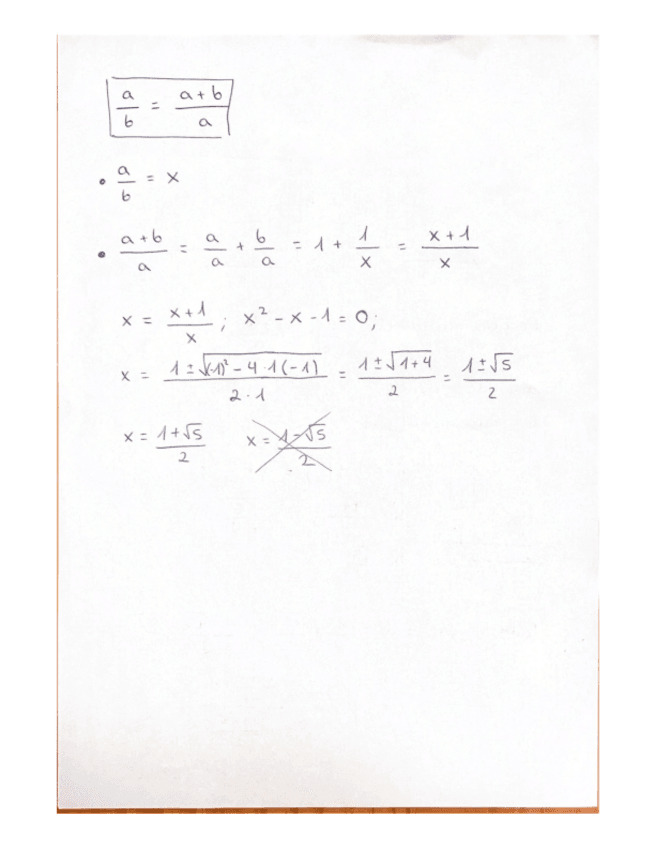 a/b = (a+b)/a
• a/b = x
• (a+b)/a = a/a + b/a = 1 + 1/x = (x+1)/x
x = (x+1)/x ; x² - x - 1 = 0;
x = (1 ± √((-1)² - 4·1(-1)))/(2·1) = (1 ± √(1+4))/2 = (1 ± √5)/2
x = (1+√5)/2 x = (1-√5)/2